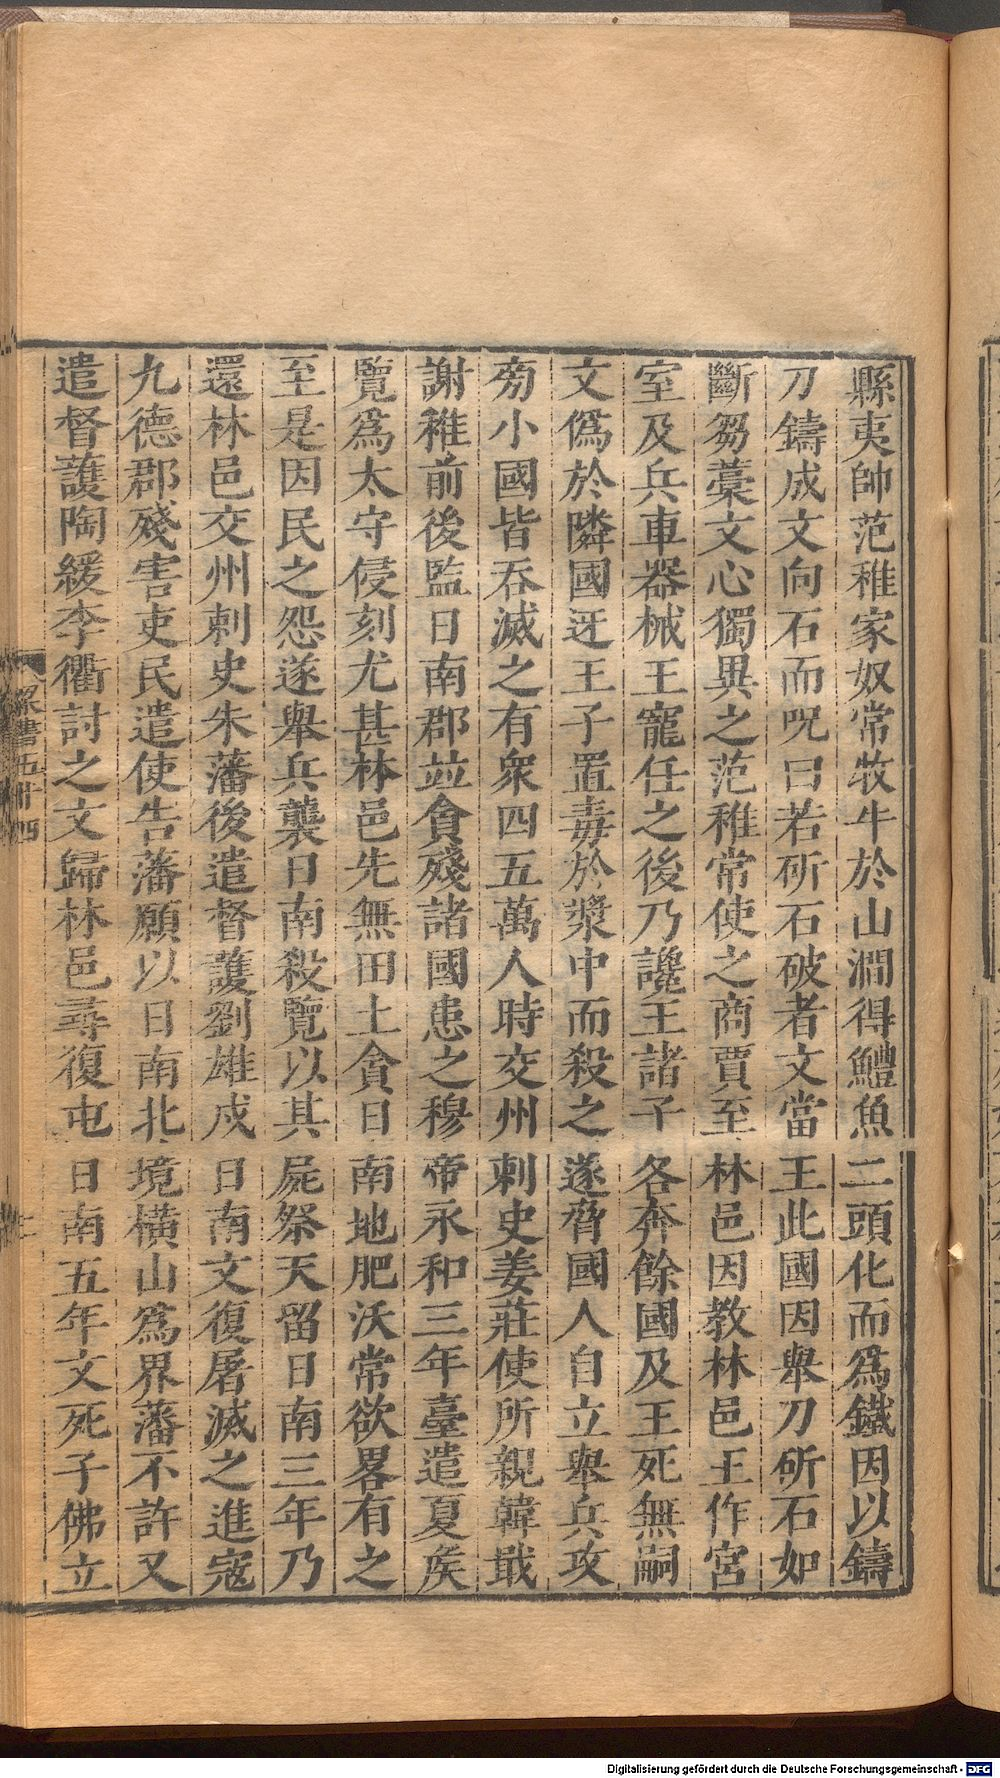 縣夷帥范稚家奴常牧牛於山澗得鱧魚二頭化而爲鐵因以鑄
刀鑄成文向石而呪曰若斫石破者文當王此國因舉刀斫石如
斷芻藁文心獨異之范稚常使之商賈至林邑因教林邑王作宮
室及兵車器械王寵任之後乃讒王諸子各奔餘國及王死無嗣
文僞於隣國迓王子置毒於漿中而殺之遂脅國人自立舉兵攻
旁小國皆吞滅之有衆四五萬人時交州刺史姜莊使所親韓戢
謝稚前後監日南郡竝貪殘諸國患之穆帝永和三年臺遣夏侯
覽爲太守侵刻尤甚林邑先無田土貪日南地肥沃常欲畧有之
至是因民之怨遂舉兵襲日南殺覽以其屍祭天留日南三年乃
還林邑交州刺史朱藩後遣督護劉雄戍日南文復屠滅之進寇
九德郡殘害吏民遣使告藩願以日南北境橫山爲界藩不許又
遣督護陶緩李衢討之文歸林邑尋復屯日南五年文死子佛立
梁書五十四
Digitalisierung gefördert durch die Deutsche Forschungsgemeinschaft - DFG